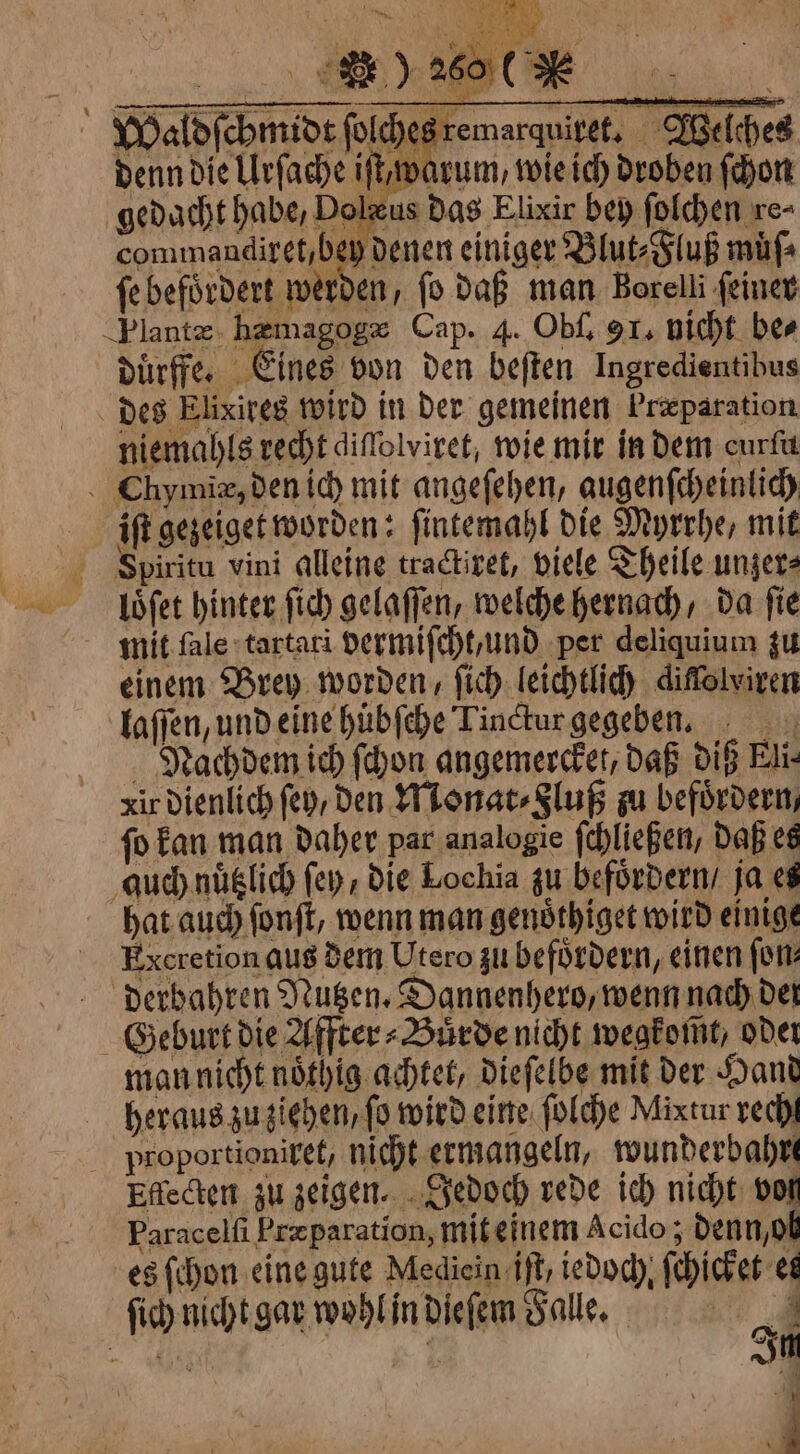 ) 260 (
Waldſchmidt ſolches remarquiret. Welches
denn die Urſache iſt, warum, wie ich droben ſchon
gedacht habe, Dolæus das Elixir bey ſolchen re-
commandiret, bey denen einiger Blut-Fluß muͤſ-
ſe befoͤrdert werden, ſo daß man Borelli ſeiner
Plantæ hæmagogæ Cap. 4. Obſ. 91. nicht be-
duͤrffe. Eines von den beſten Ingredientibus
des Elixires wird in der gemeinen Præparation
niemahls recht diſſolviret, wie mir in dem curſu
Chymiæ, den ich mit angeſehen, augenſcheinlich
iſt gezeiget worden: ſintemahl die Myrrhe, mit
Spiritu vini alleine tractiret, viele Theile unzer-
loͤſet hinter ſich gelaſſen, welche hernach, da ſie
mit ſale tartari vermiſcht, und per deliquium zu
einem Brey worden, ſich leichtlich diſſolviren
laſſen, und eine huͤbſche Tinctur gegeben.
Nachdem ich ſchon angemercket, daß diß Eli-
xir dienlich ſey, den Monat-Fluß zu befoͤrdern,
ſo kan man daher par analogie ſchließen, daß es
auch nuͤtzlich ſey, die Lochia zu befoͤrdern, ja es
hat auch ſonſt, wenn man genoͤthiget wird einige
Excretion aus dem Utero zu befoͤrdern, einen ſon-
derbahren Nutzen. Dannenhero, wenn nach der
Geburt die Affter-Buͤrde nicht wegkom̃t, oder
man nicht noͤthig achtet, dieſelbe mit der Hand
heraus zu ziehen, ſo wird eine ſolche Mixtur recht
proportioniret, nicht ermangeln, wunderbahre
Effecten zu zeigen. Jedoch rede ich nicht von
Paracelſi Præparation, mit einem Acido; denn, ob
es ſchon eine gute Medicin iſt, iedoch, ſchicket es
ſich nicht gar wohl in dieſem Falle.
Im